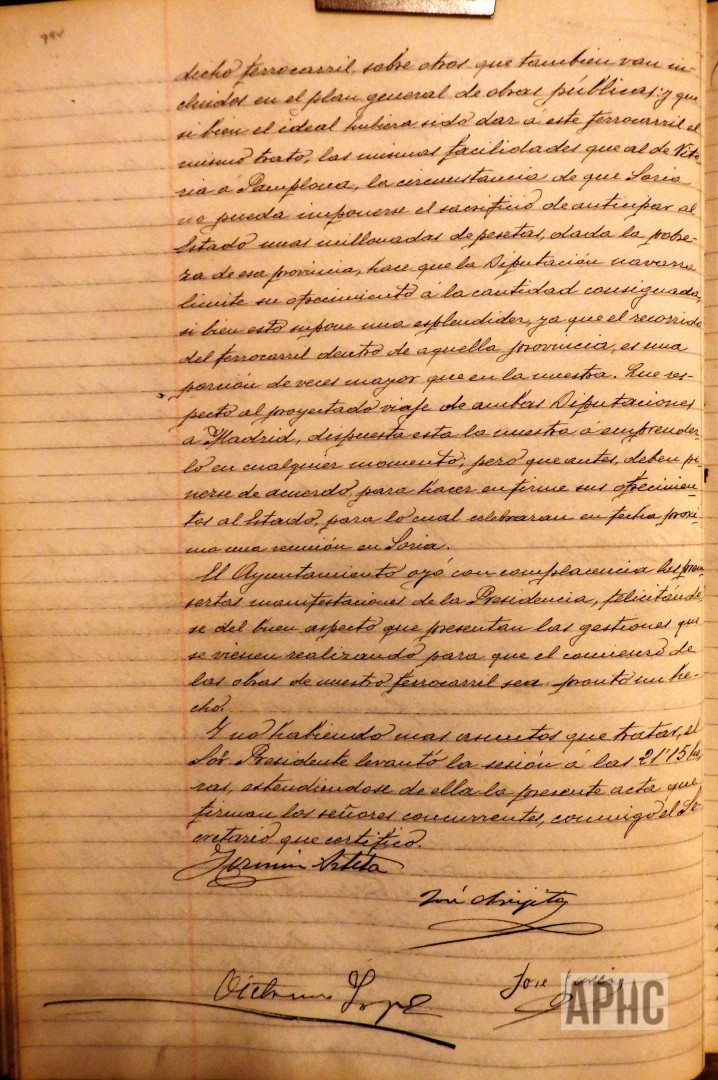 dicho ferrocarril, sobre otros que tambien van in-
cluidos en el plan general de obras públicas: y que
si bien el ideal hubiera sido dar á este ferrocarril el
mismo trato, las mismas facilidades que al de Vito-
ria á Pamplona, la circunstancia de que Soria
no pueda imponerse el sacrificio de anticipar al
Estado unas millonadas de pesetas, dada la pobre-
za de esa provincia, hace que la Diputación navarra
limite su ofrecimiento á la cantidad consignada,
si bien esto supone una esplendidez, ya que el recorrido
del ferrocarril dentro de aquella provincia, es una
porción de veces mayor que en la nuestra. Que res-
pecto al proyectado viaje de ambas Diputaciones
a Madrid, dispuesta esta la nuestra á emprender-
lo en cualquier momento; pero que antes, deben po-
nerse de acuerdo para hacer en firme sus ofrecimien-
tos al Estado, para lo cual celebraran en fecha proxi-
ma una reunión en Soria.
El Ayuntamiento oyó con complacencia las prein-
sertas manifestaciones de la Presidencia, felicitándo-
se del buen aspecto que presentan las gestiones que
se vienen realizando para que el comienzo de
las obras de nuestro ferrocarril sea pronto un he-
cho.
Y no habiendo mas asuntos que tratar, el
Sór. Presidente levantó la sesión á las 21'15 ho-
ras, estendiendose de ella la presente acta que
firman los señores concurrentes, conmigo el Se-
cretario que certifico.
Fermin Arteta
José
José
APHC